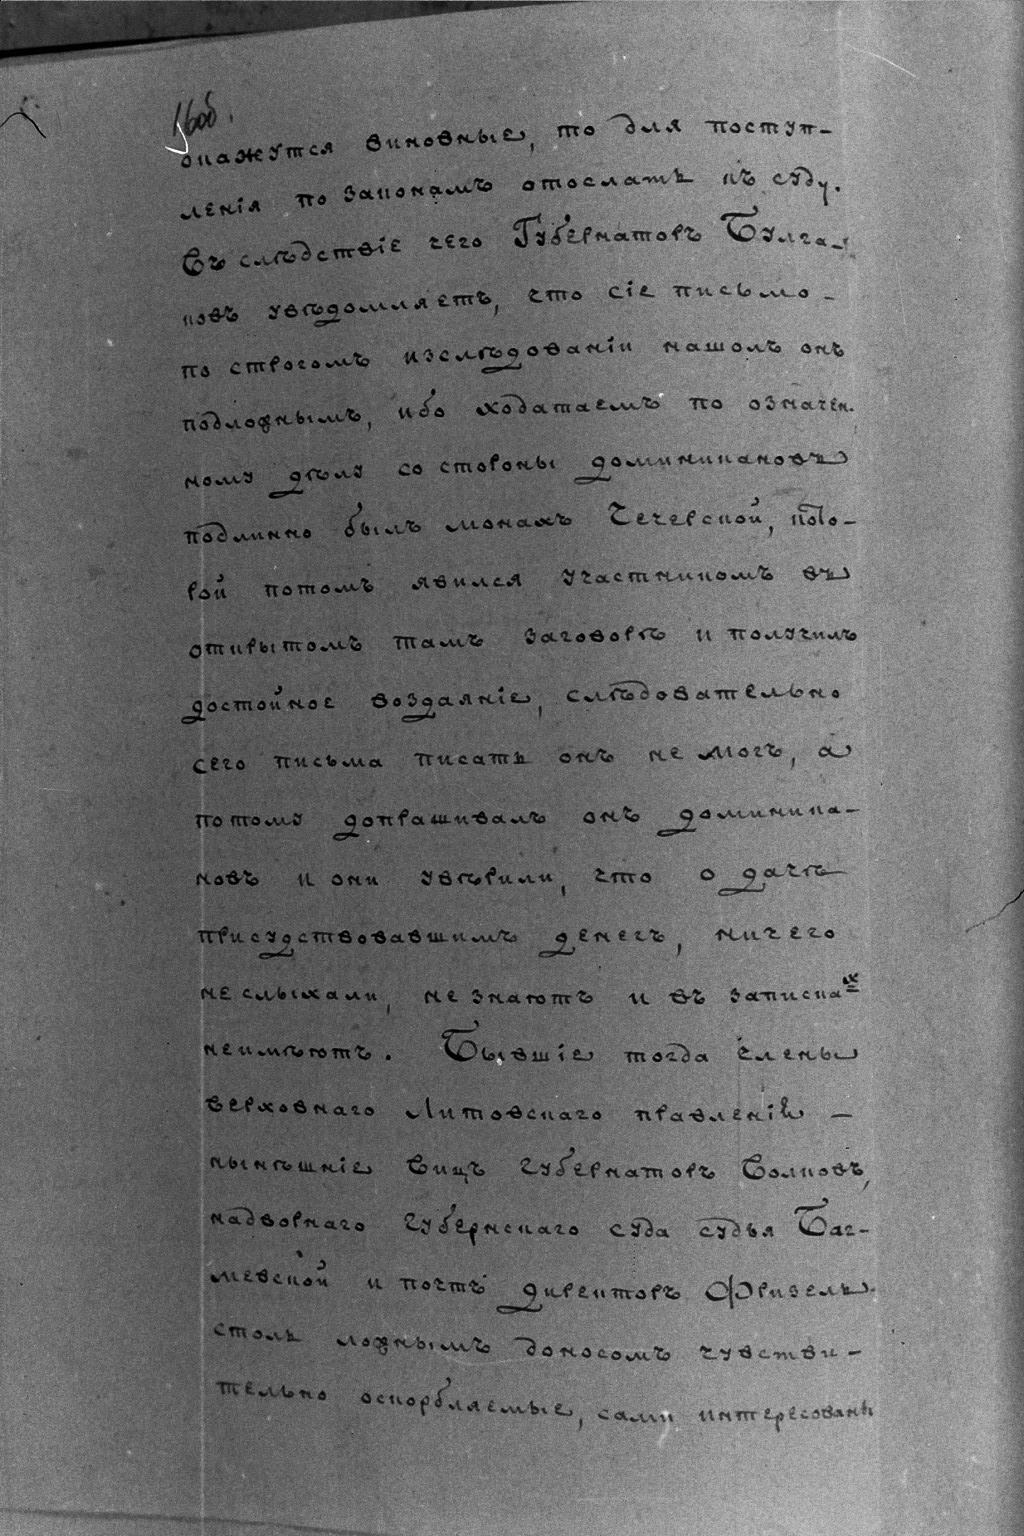 16об.
окажутся виновные, то для поступ-
ленія по законамъ отослать къ суду.
Въ слѣдствіе чего Губернаторъ Булга-
ковъ увѣдомляетъ, что сіе письмо -
по строгомъ изслѣдованіи нашолъ онъ
подложнымъ, ибо ходатаемъ по означен.
ному дѣлу со стороны доминикановъ
подлинно былъ монахъ Чечерской, кото-
рой потомъ явился участникомъ въ
открытомъ тамъ заговорѣ и получилъ
достойное воздаяніе, слѣдовательно
сего письма писать онъ не могъ, а
потому допрашивалъ онъ доминика-
новъ и они увѣрили, что о дачѣ
присудствовавшимъ денегъ, ничего
не слыхали, не знаютъ и въ запискахъ
неимѣютъ. Бывшіе тогда члены
верховнаго Литовскаго правленія -
нынѣшніе Вицъ Губернаторъ Волковъ,
надворнаго Губернскаго суда судья Баг-
мевской и почтъ директоръ Фризель
столь ложнымъ доносомъ чувстви-
тельно оскорбляемые, сами интересованы